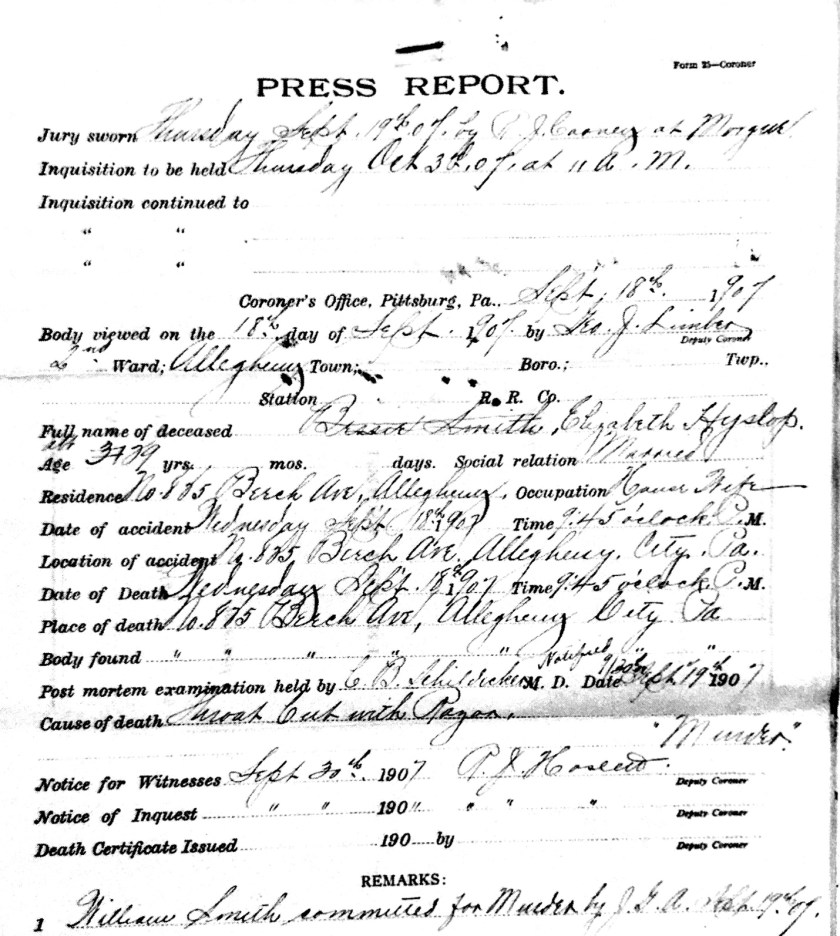 Form 25—Coroner
PRESS REPORT.
Jury sworn Thursday Sept. 19th 07. by P. J. Cooney at Morgue
Inquisition to be held Thursday Oct 3d. 07. at 11 A. M.
Inquisition continued to
" "
" "
Coroner's Office, Pittsburg, Pa., Sept, 18th. 1907
Body viewed on the 18th. day of Sept. 1907. by Geo. J. Limber
Deputy Coroner
2nd Ward; Allegheny Town; Boro.; Twp.,
Station R. R. Co.
Full name of deceased Bessie Smith, Elizabeth Hyslop.
Age 39 yrs., mos. days. Social relation Married
Residence No. 835 Berch Ave, Allegheny. Occupation House Wife
Date of accident Wednesday Sept 18th 1907 Time 9:45 o'clock P. M.
Location of accident No. 835 Berch Ave, Allegheny. City. Pa.
Date of Death Wednesday Sept. 18th 1907 Time 9:45 o'clock P. M.
Place of death No. 835 Berch Ave, Allegheny City Pa
Body found " " " " " " "
Post mortem examination held by C. B. Schildecker M. D. Notified Date Sept 19th 1907
Cause of death Throat Cut with Razor.
"Murder."
Notice for Witnesses Sept 30th. 1907 P. J.
Deputy Coroner
Notice of Inquest " " 190" " " "
Deputy Coroner
Death Certificate Issued 190 by
Deputy Coroner
REMARKS:
1 William Smith committed for Murder by J. G. A. Sept. 19th 07.